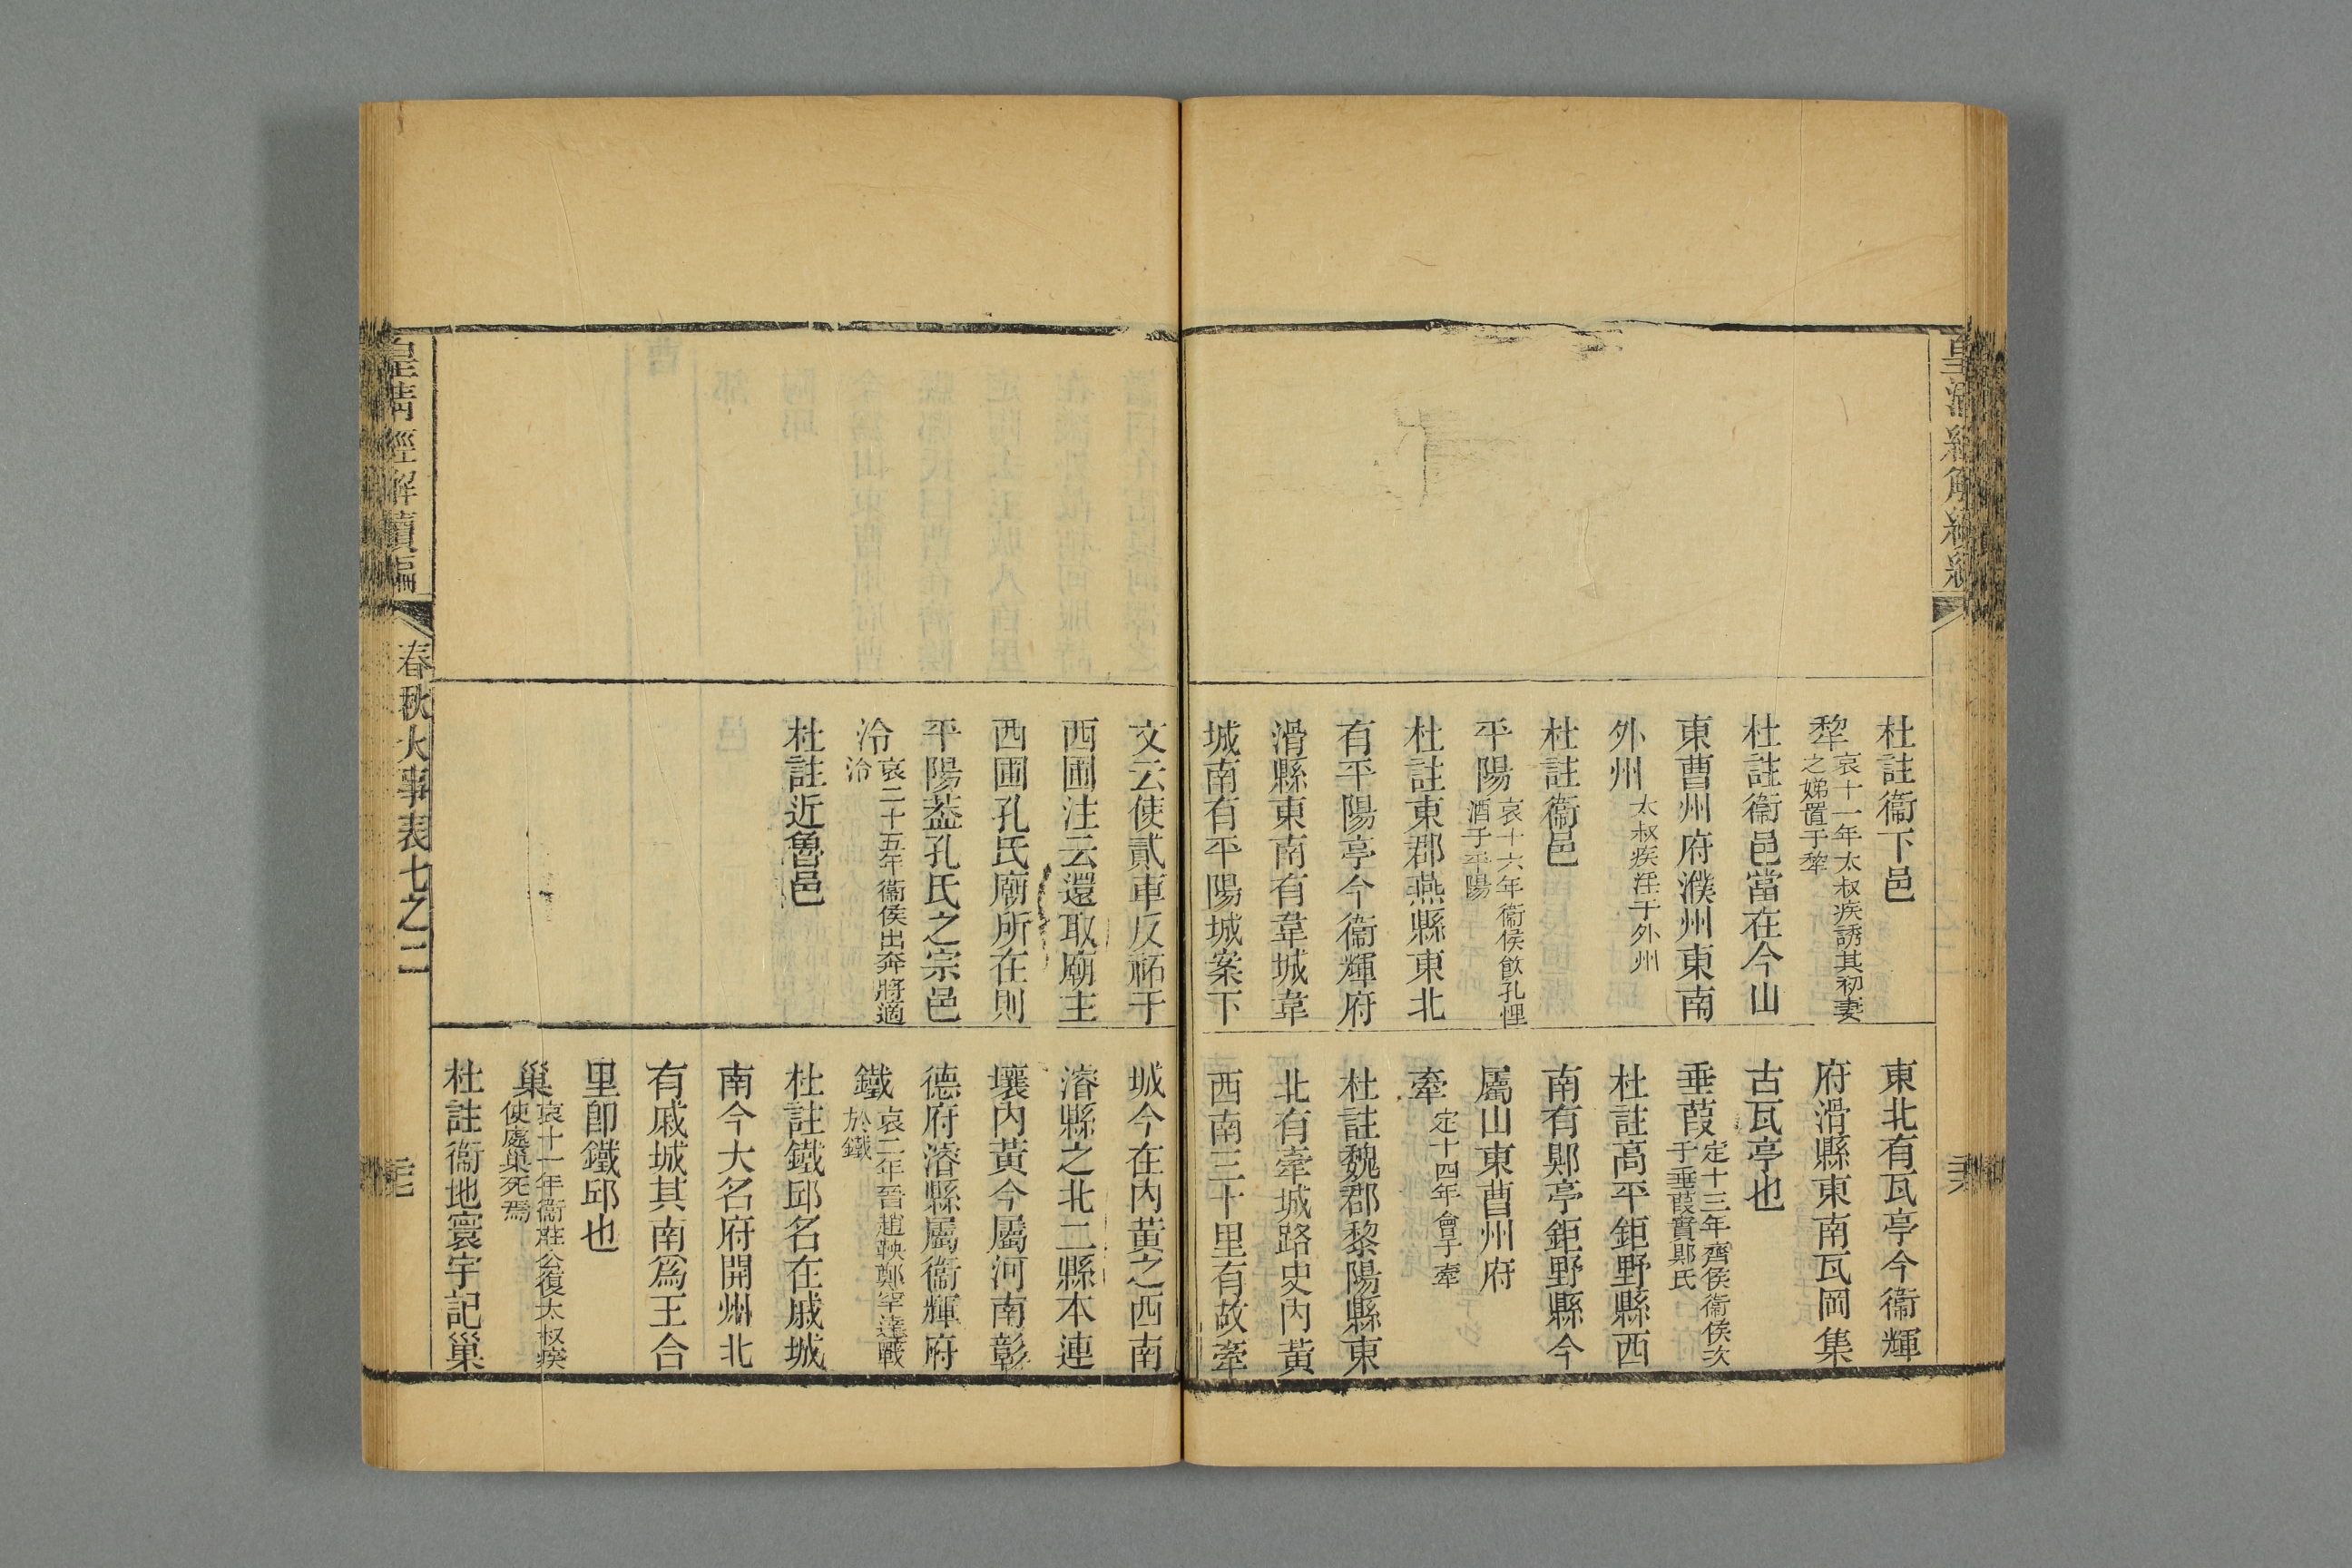 皇清經解續編
杜註衞下邑
犂哀十一年太叔疾誘其初妻
之娣置于犂
杜註衞邑當在今山
東曹州府濮州東南
外州太叔疾淫于外州
杜註衞邑
平陽哀十六年衞侯飮孔悝
酒于平陽
杜註東郡燕縣東北
有平陽亭今衞輝府
滑縣東南有韋城韋
城南有平陽城案下
東北有瓦亭今衞輝
府滑縣東南瓦岡集
古瓦亭也
垂葭定十三年齊侯衞侯次
于垂葭實郹氏
杜註高平鉅野縣西
南有郹亭鉅野縣今
屬山東曹州府
牽定十四年會于牽
杜註魏郡黎陽縣東
北有牽城路史內黃
西南三十里有故牽
文云使貳車反祏于
西圃注云還取廟主
西圃孔氏廟所在則
平陽葢孔氏之宗邑
泠哀二十五年衞侯出奔將適
泠
杜註近魯邑
城今在內黃之西南
濬縣之北二縣本連
壤內黃今屬河南彰
德府濬縣屬衞輝府
鐵哀二年晉趙鞅鄭罕達戰
於鐵
杜註鐵邱名在戚城
南今大名府開州北
有戚城其南爲王合
里卽鐵邱也
巢哀十一年衞莊公復太叔疾
使處巢死焉
杜註衞地寰宇記巢
皇清經解續編
春秋大事表七之二